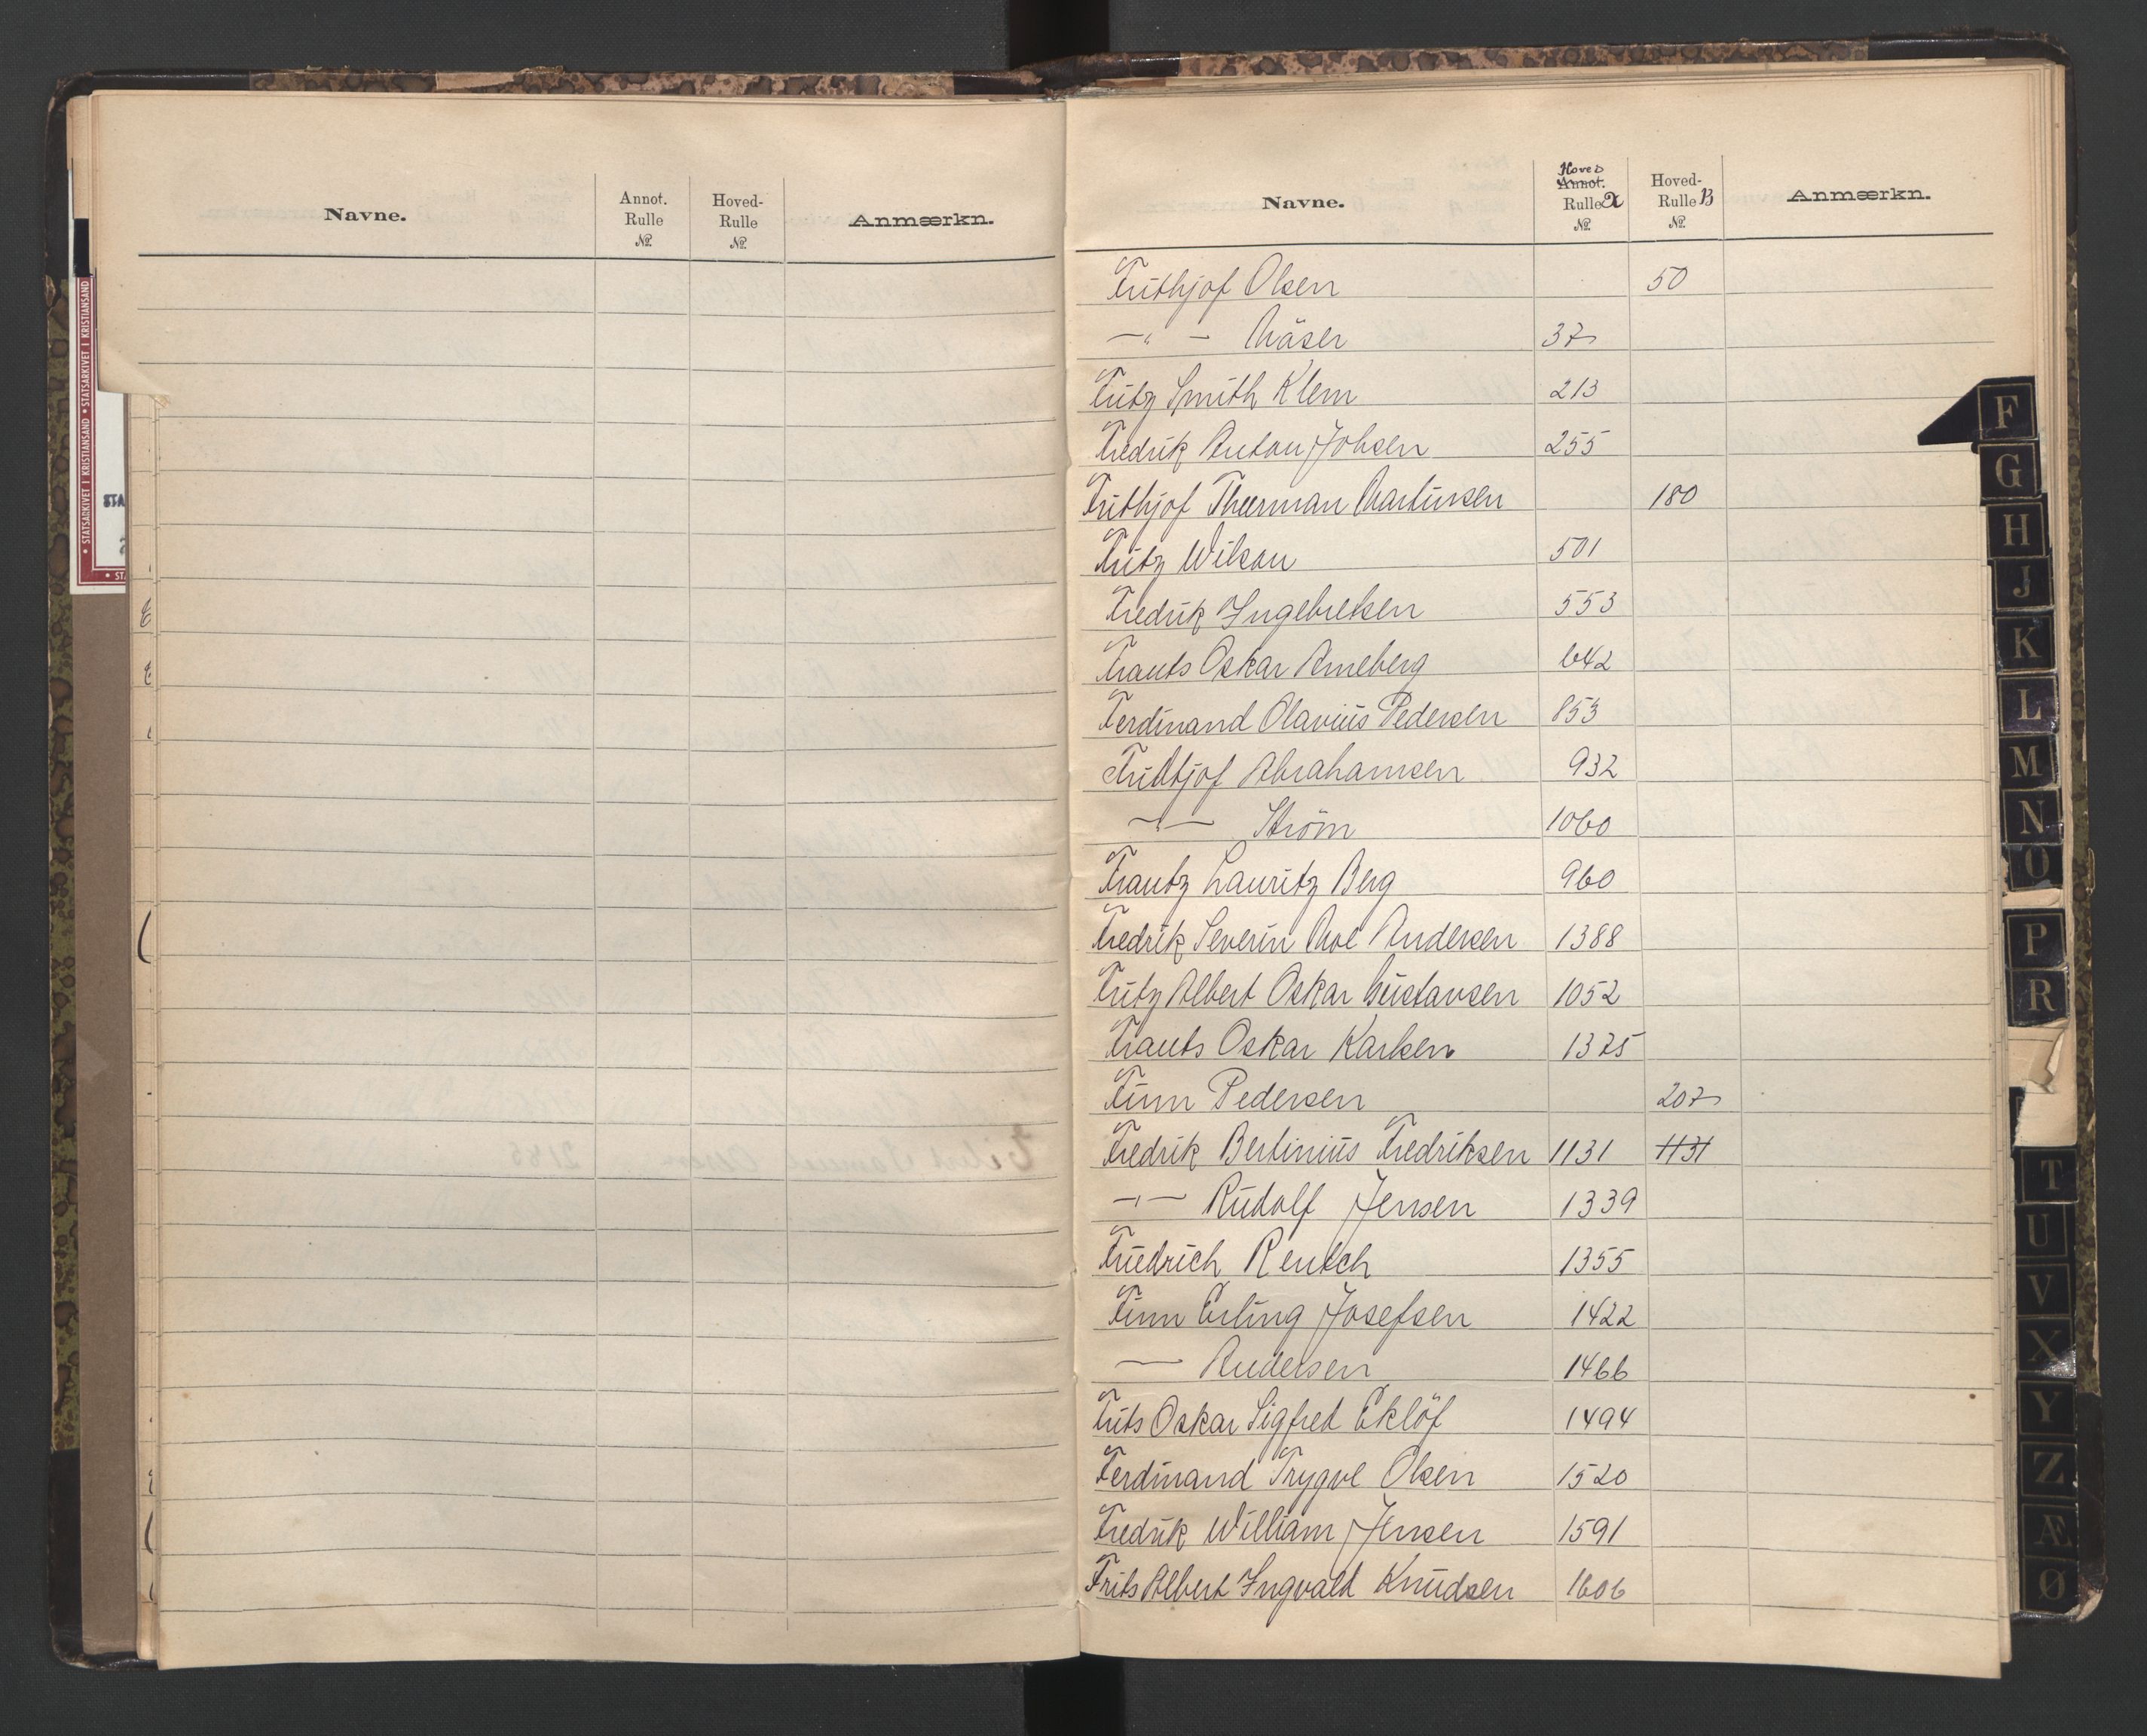 Navne.
Annot. Rulle №.
Hoved- Rulle №.
Anmærkn.
Navne.
Hoved Annot. Rulle A №.
Hoved- Rulle B №.
Anmærkn.
Frithjof Olsen 50
—"— Mäser 37
Fritz Smith Klem 213
Fredrik Anton Johsen 255
Frithjof Theerman Martinsen 180
Fritz Wilson 501
Fredrik Ingebretsen 553
Frants Oskar Arneberg 642
Ferdinand Olavius Pedersen 853
Frithjof Abrahamsen 932
—"— Ström 1060
Frantz Lauritz Berg 960
Fredrik Severin Moe Andersen 1388
Fritz Albert Oskar Gustavsen 1052
Frants Oskar Karlsen 1375
Finn Pedersen 207
Fredrik Bertinius Fredriksen 1131 1131
—"— Rudolf Jensen 1339
Friedrich Rentsch 1355
Finn Erling Josefsen 1422
— Andersen 1466
Frits Oskar Sigfred Eklöf 1494
Ferdinand Trygve Olsen 1520
Fredrik William Jensen 1591
Frits Albert Ingvald Knudsen 1606
F
G
H
J
K
L
M
N
O
P
R
T
U
V
X
Y
Z
Æ
Ø
STATSARKIVET I KRISTIANSAND • STATSARKIVET I KRISTIANSAND
STA